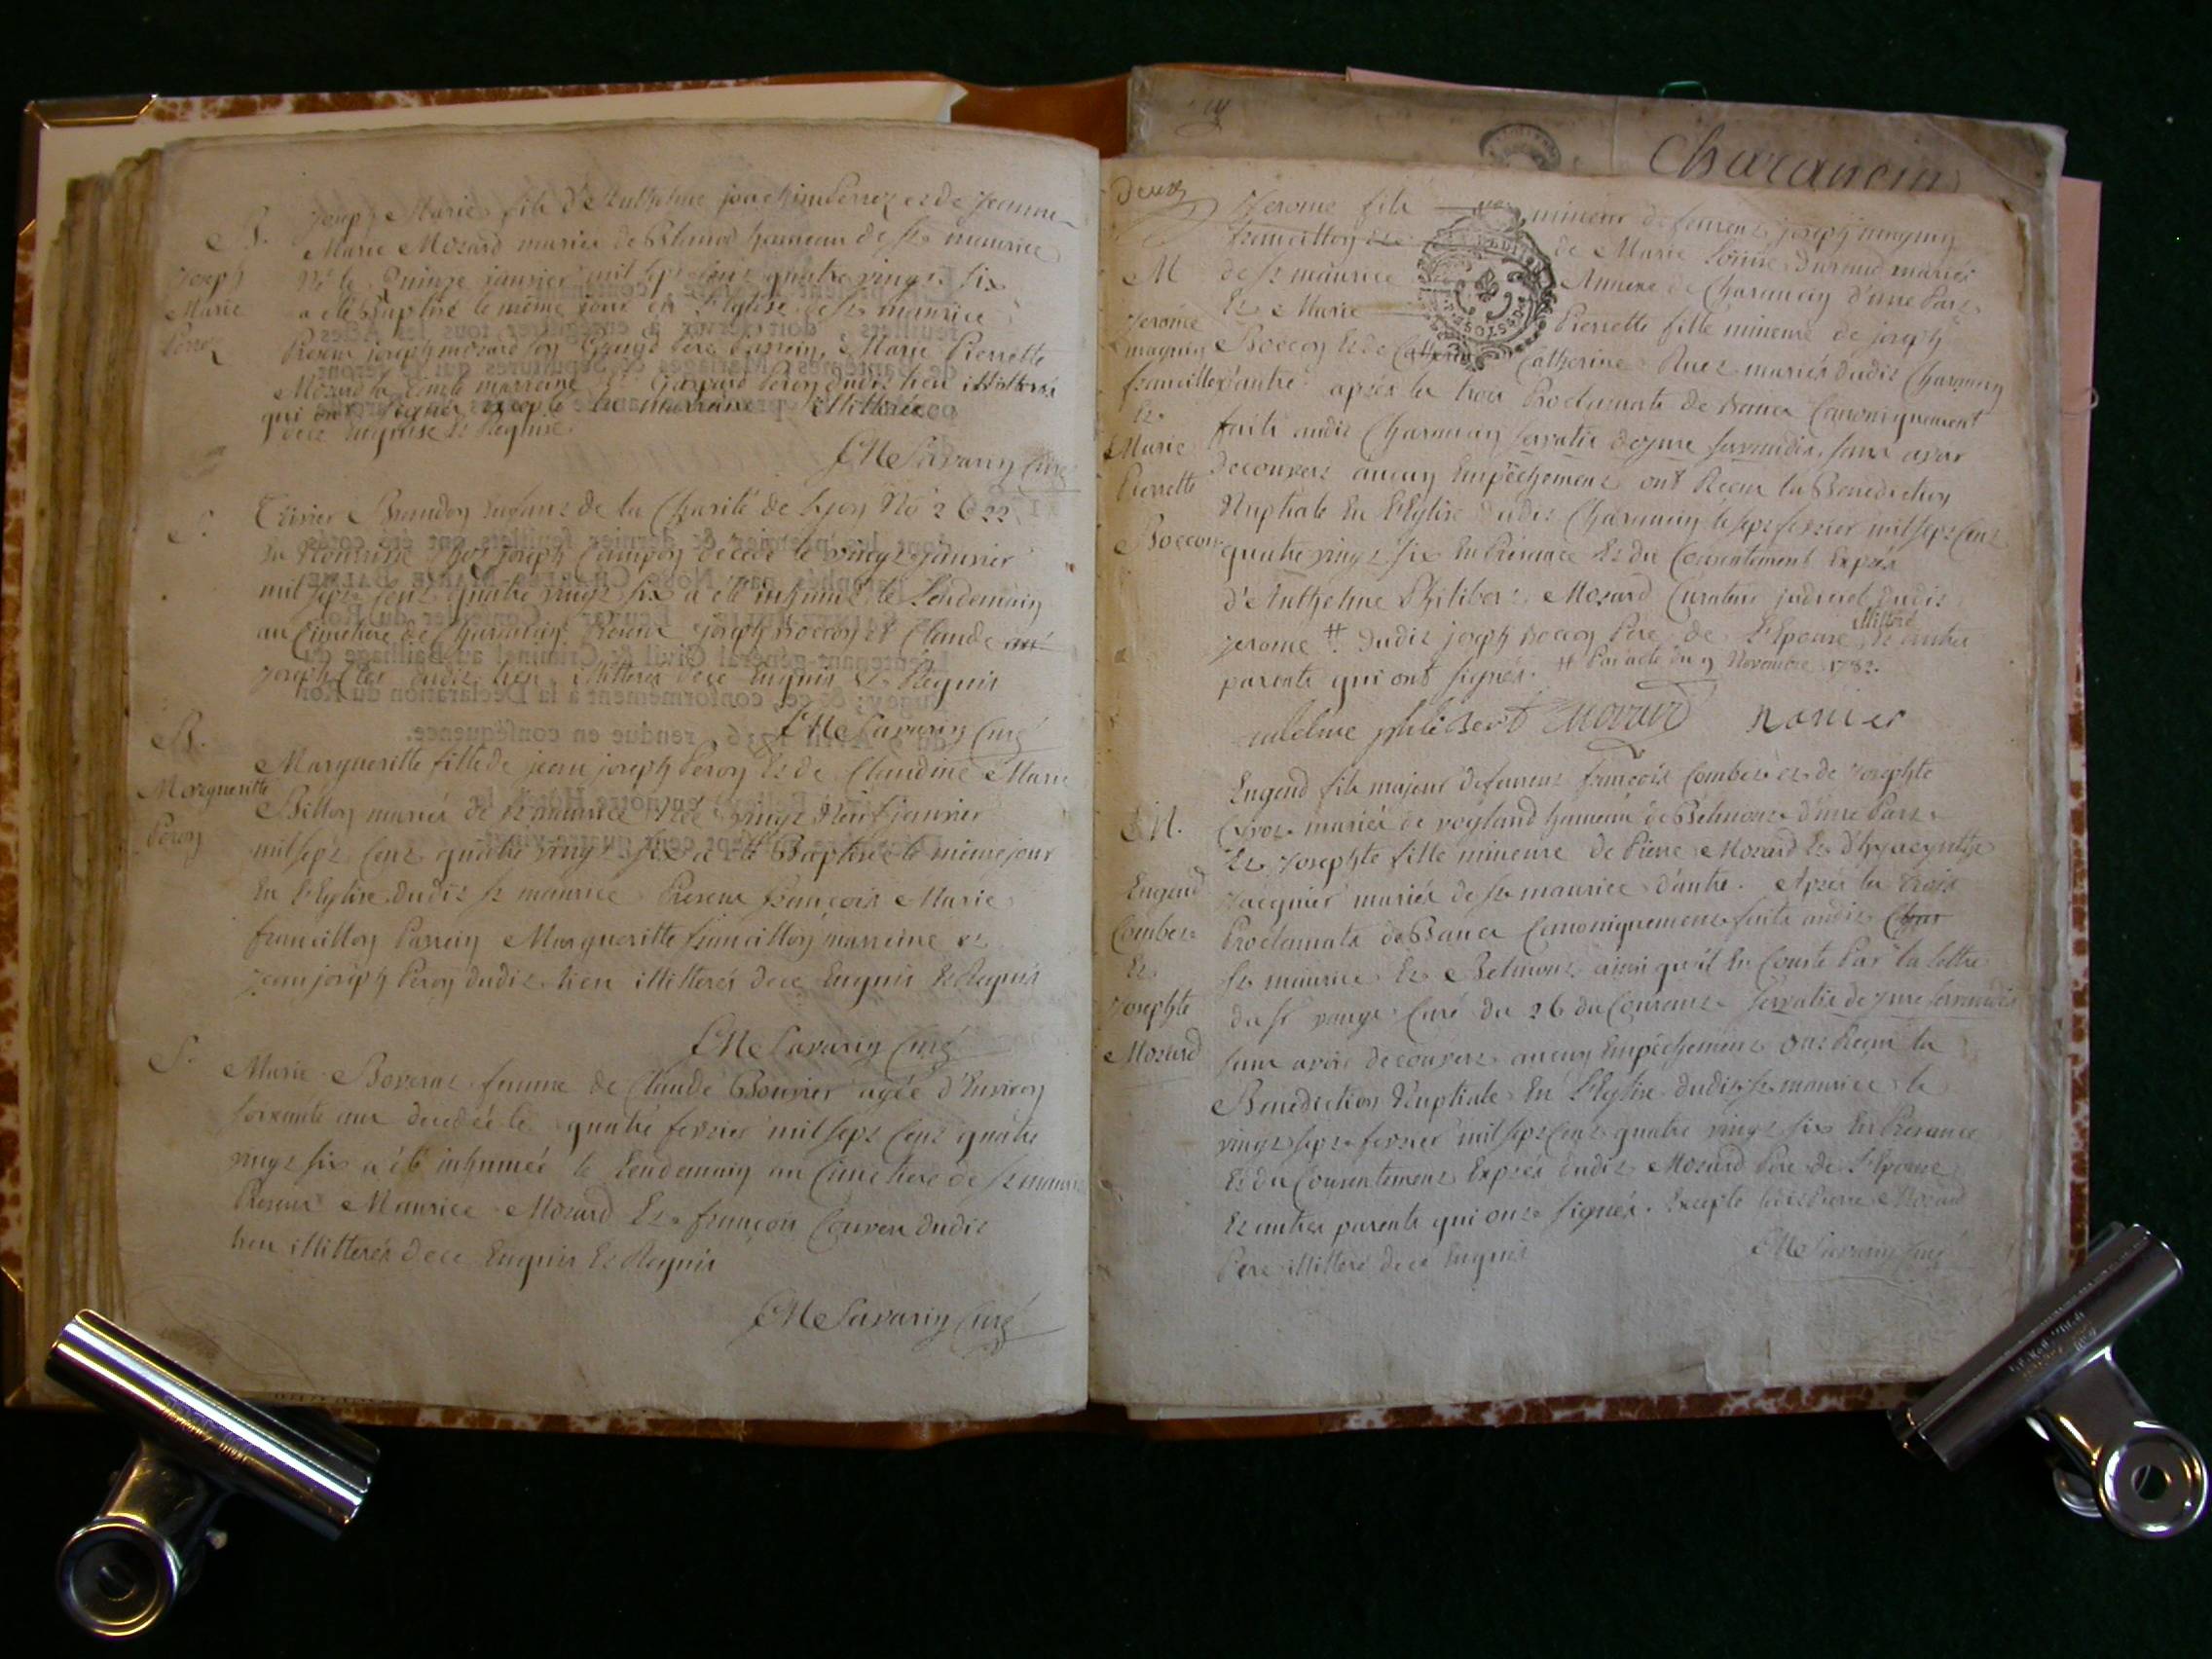 B.
Joseph
Marie
Perroz
Joseph Marie fils d'Anthelme joachim Perroz et de Jeanne
Marie Mozard mariés de Belmont hameau de St maurice
Né le Quinze janvier mil sept cent quatre vingt six
a été Baptisé le même jour en l'Eglise de St maurice
Présent joseph mozard son Grand Pere Parrein, & Marie Pierrette
Mozard sa tante marreine et Gaspard Peroy dudit lieu illitterés
qui ont signés excepté la marreine illitterée
dece Enquise et Requise.
CM Savarin Curé
S.
Brandon Enfant de la Charité de Lyon No 2622
En Nourrisse chez joseph Campon decedé le vingt janvier
mil sept cent quatre vingt six a été inhumé le Lendemain
au Cimetiere de Charancin Présent joseph Boccon et Claude
joseph dudit lieu illitterés dece Enquis et Requis
CM Savarin Curé
B.
Margueritte
Peroy
Margueritte fille de jean joseph Peroy Et de Claudine Marie
Billion mariés de St maurice Née le vingt Neuf janvier
mil sept cent quatre vingt six a été Baptisée le même jour
En l'Eglise dudit St maurice Présent françois Marie
francillon Parrein Margueritte francillon marreine et
jean joseph Peroy dudit lieu illitterés dece Enquis Et Requis
CM Savarin Curé
S.
Marie Boverat femme de Claude Bouvier agée d'Environ
soixante ans decedée le quatre fevrier mil sept Cent quatre
vingt six a été inhumée le Lendemain au Cimetiere de St maurice
Présent Maurice Mozard Et françois dudit
lieu illitterés dece Enquis Et Requis
CM Savarin Curé
Charancin
Deux
M
Jerome
magnin
francillon
Et
Marie
Pierrette
Boccon
Jerome fils mineur defeu joseph magnin
francillon et de Marie Loüise Durand mariés
de St maurice Annexe de Charancin d'une Part
Et Marie Pierrette fille mineure de joseph
Boccon Et de Catherine mariés dudit Charancin
d'autre après les trois Proclamats de Bancs Canoniquement
faits audit Charancin servatis dejure servandis, sans avoir
decouvert aucun Empêchement ont Recu la Benediction
Nuptiale En l'Eglise dudit Charancin le sept fevrier mil sept Cent
quatre vingt six En Présence Et du Consentement Exprés
d'Anthelme Philibert Mozard Curateur judiciel dudit
jerome # dudit joseph Boccon Pere de l'Epouse illitteré Et autres
parents qui ont signés. # Par acte du 9 Novembre 1782.
anthelme philibert Mozard
M.
Eugend
Combet
Et
Josephte
Mozard
Eugend fils majeur defeu françois Combet et de Josephte
mariés de vogland hameau de Belmont d'une Part
Et Josephte fille mineure de Pierre Mozard Et d'hyacynthe
Jacquier mariés de St maurice d'autre. Après les trois
Proclamats de Bancs Canoniquement faits audit Char
St maurice Et Belmont ainsi qu'il En Conste Par la lettre
du Sr Curé du 26 du Courant servatis de jure servandis
sans avoir decouvert aucun Empêchement ont Reçu la
Benediction Nuptiale En l'Eglise dudit St maurice le
vingt sept fevrier mil sept Cent quatre vingt six En Présence
Et du Consentement Exprés dudit Mozard Pere de l'Epouse
Et autres parents qui ont signés. Excepté ledit Pierre Mozard
Pere illitteré dece Enquis
CM Savarin Curé